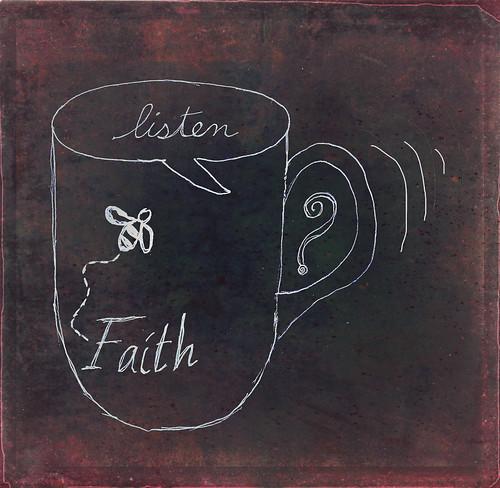 listen
Faith